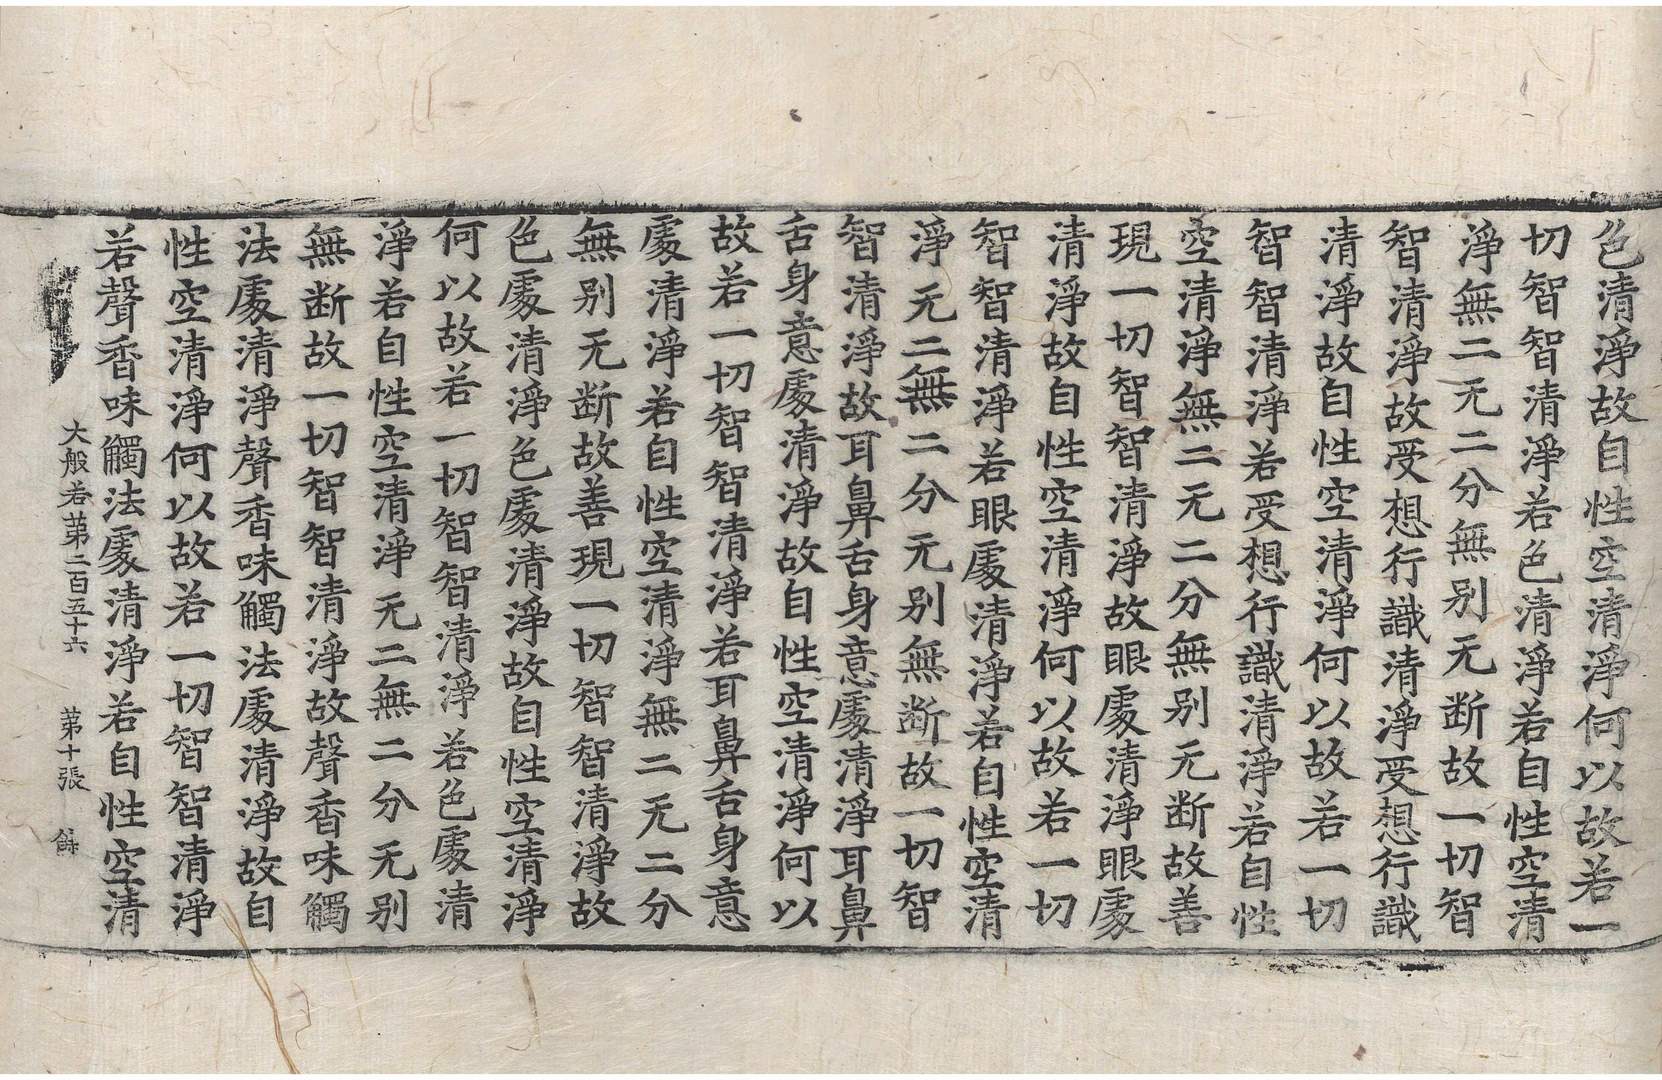 色清淨故自性空清淨何以故若一
切智智清淨若色清淨若自性空清
淨無二无二分無别无断故一切智
智清淨故受想行識清淨受想行識
清淨故自性空清淨何以故若一切
智智清淨若受想行識清淨若自性
空清淨無二无二分無别无断故善
現一切智智清淨故眼處清淨眼處
清淨故自性空清淨何以故若一切
智智清淨若眼處清淨若自性空清
淨无二無二分无别無断故一切智
智清淨故耳鼻舌身意處清淨耳鼻
舌身意處清淨故自性空清淨何以
故若一切智智清淨若耳鼻舌身意
處清淨若自性空清淨無二无二分
無别无断故善現一切智智清淨故
色處清淨色處清淨故自性空清淨
何以故若一切智智清淨若色處清
淨若自性空清淨无二無二分无别
無断故一切智智清淨故聲香味觸
法處清淨聲香味觸法處清淨故自
性空清淨何以故若一切智智清淨
若聲香味觸法處清淨若自性空清
大般若苐二百五十六 苐十張 餘